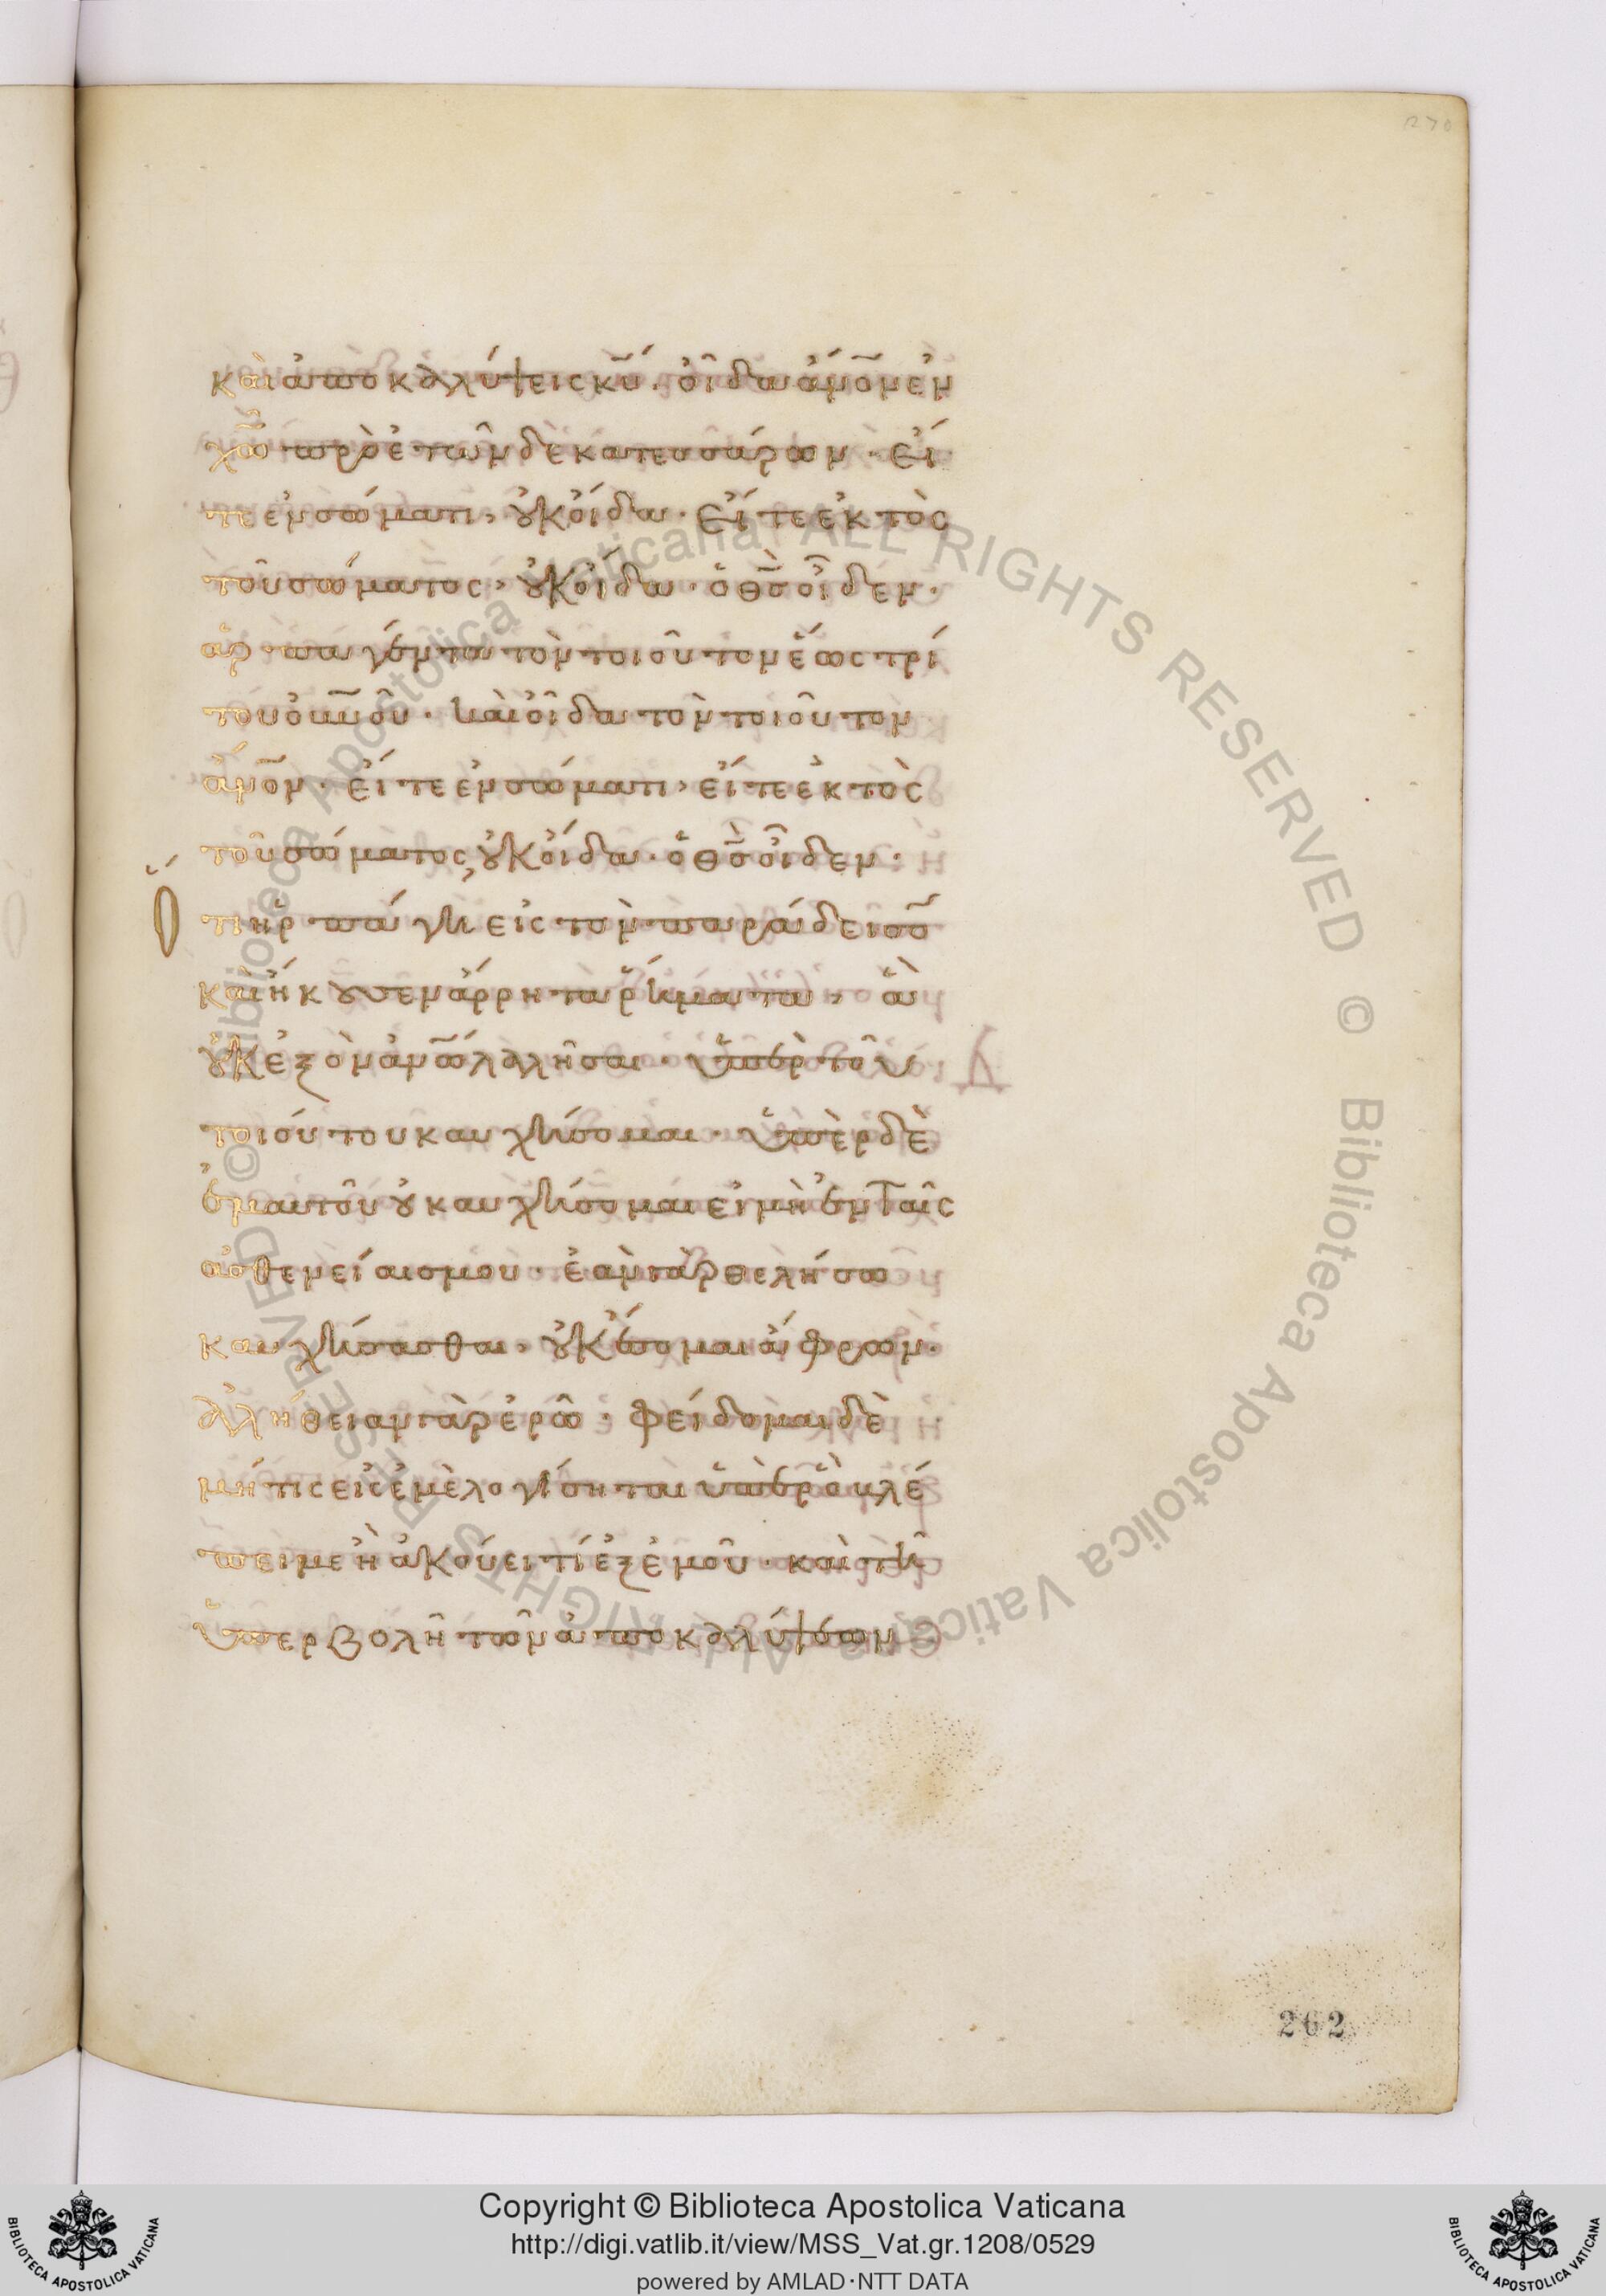 270
καὶ ἀποκαλύψεις κ̅υ̅· οἶδα ἄν̅ο̅ν̅ ἐν
χ̅ω̅ πρὸ ἐτῶν δεκατεσσάρων· εἴ
τε ἐν σώματι, οὐκ οἶδα· εἴτε ἐκτὸς
τοῦ σώματος, οὐκ οἶδα· ὁ θ̅ς̅ οἶδεν·
ἁρπαγέντα τὸν τοιοῦτον ἕως τρί
του οὐ̅ν̅ο̅ῦ· καὶ οἶδα τὸν τοιοῦτον
ἄν̅ο̅ν̅· εἴτε ἐν σώματι, εἴτε ἐκτὸς
τοῦ σώματος, οὐκ οἶδα· ὁ θ̅ς̅ οἶδεν·
Ὅτι ἡρπάγη εἰς τὸν παράδεισο̅
καὶ ἤκουσεν ἄρρητα ῥήματα, ἃ
οὐκ ἐξὸν ἀν̅ω̅ λαλῆσαι· ὑπὲρ τοῦ
τοιούτου καυχήσομαι· ὑπὲρ δὲ
ἐμαυτοῦ οὐ καυχήσομαι εἰ μὴ ἐν ταῖς
ἀσθενείαις μου· ἐὰν γὰρ θελήσω
καυχήσασθαι, οὐκ ἔσομαι ἄφρων·
ἀλήθειαν γὰρ ἐρῶ· φείδομαι δὲ
μή τις εἰς ἐμὲ λογίσηται ὑπὲρ ὃ βλέ
πει με ἢ ἀκούει τί ἐξ ἐμοῦ· καὶ τῆ
ὑπερβολῆ τῶν ἀποκαλύψεων
262
© Biblioteca Apostolica Vaticana ALL RIGHTS RESERVED © Biblioteca Apostolica Vaticana ALL RIGHTS RESERVED
Copyright © Biblioteca Apostolica Vaticana
http://digi.vatlib.it/view/MSS_Vat.gr.1208/0529
powered by AMLAD·NTT DATA
BIBLIOTECA APOSTOLICA VATICANA
BIBLIOTECA APOSTOLICA VATICANA